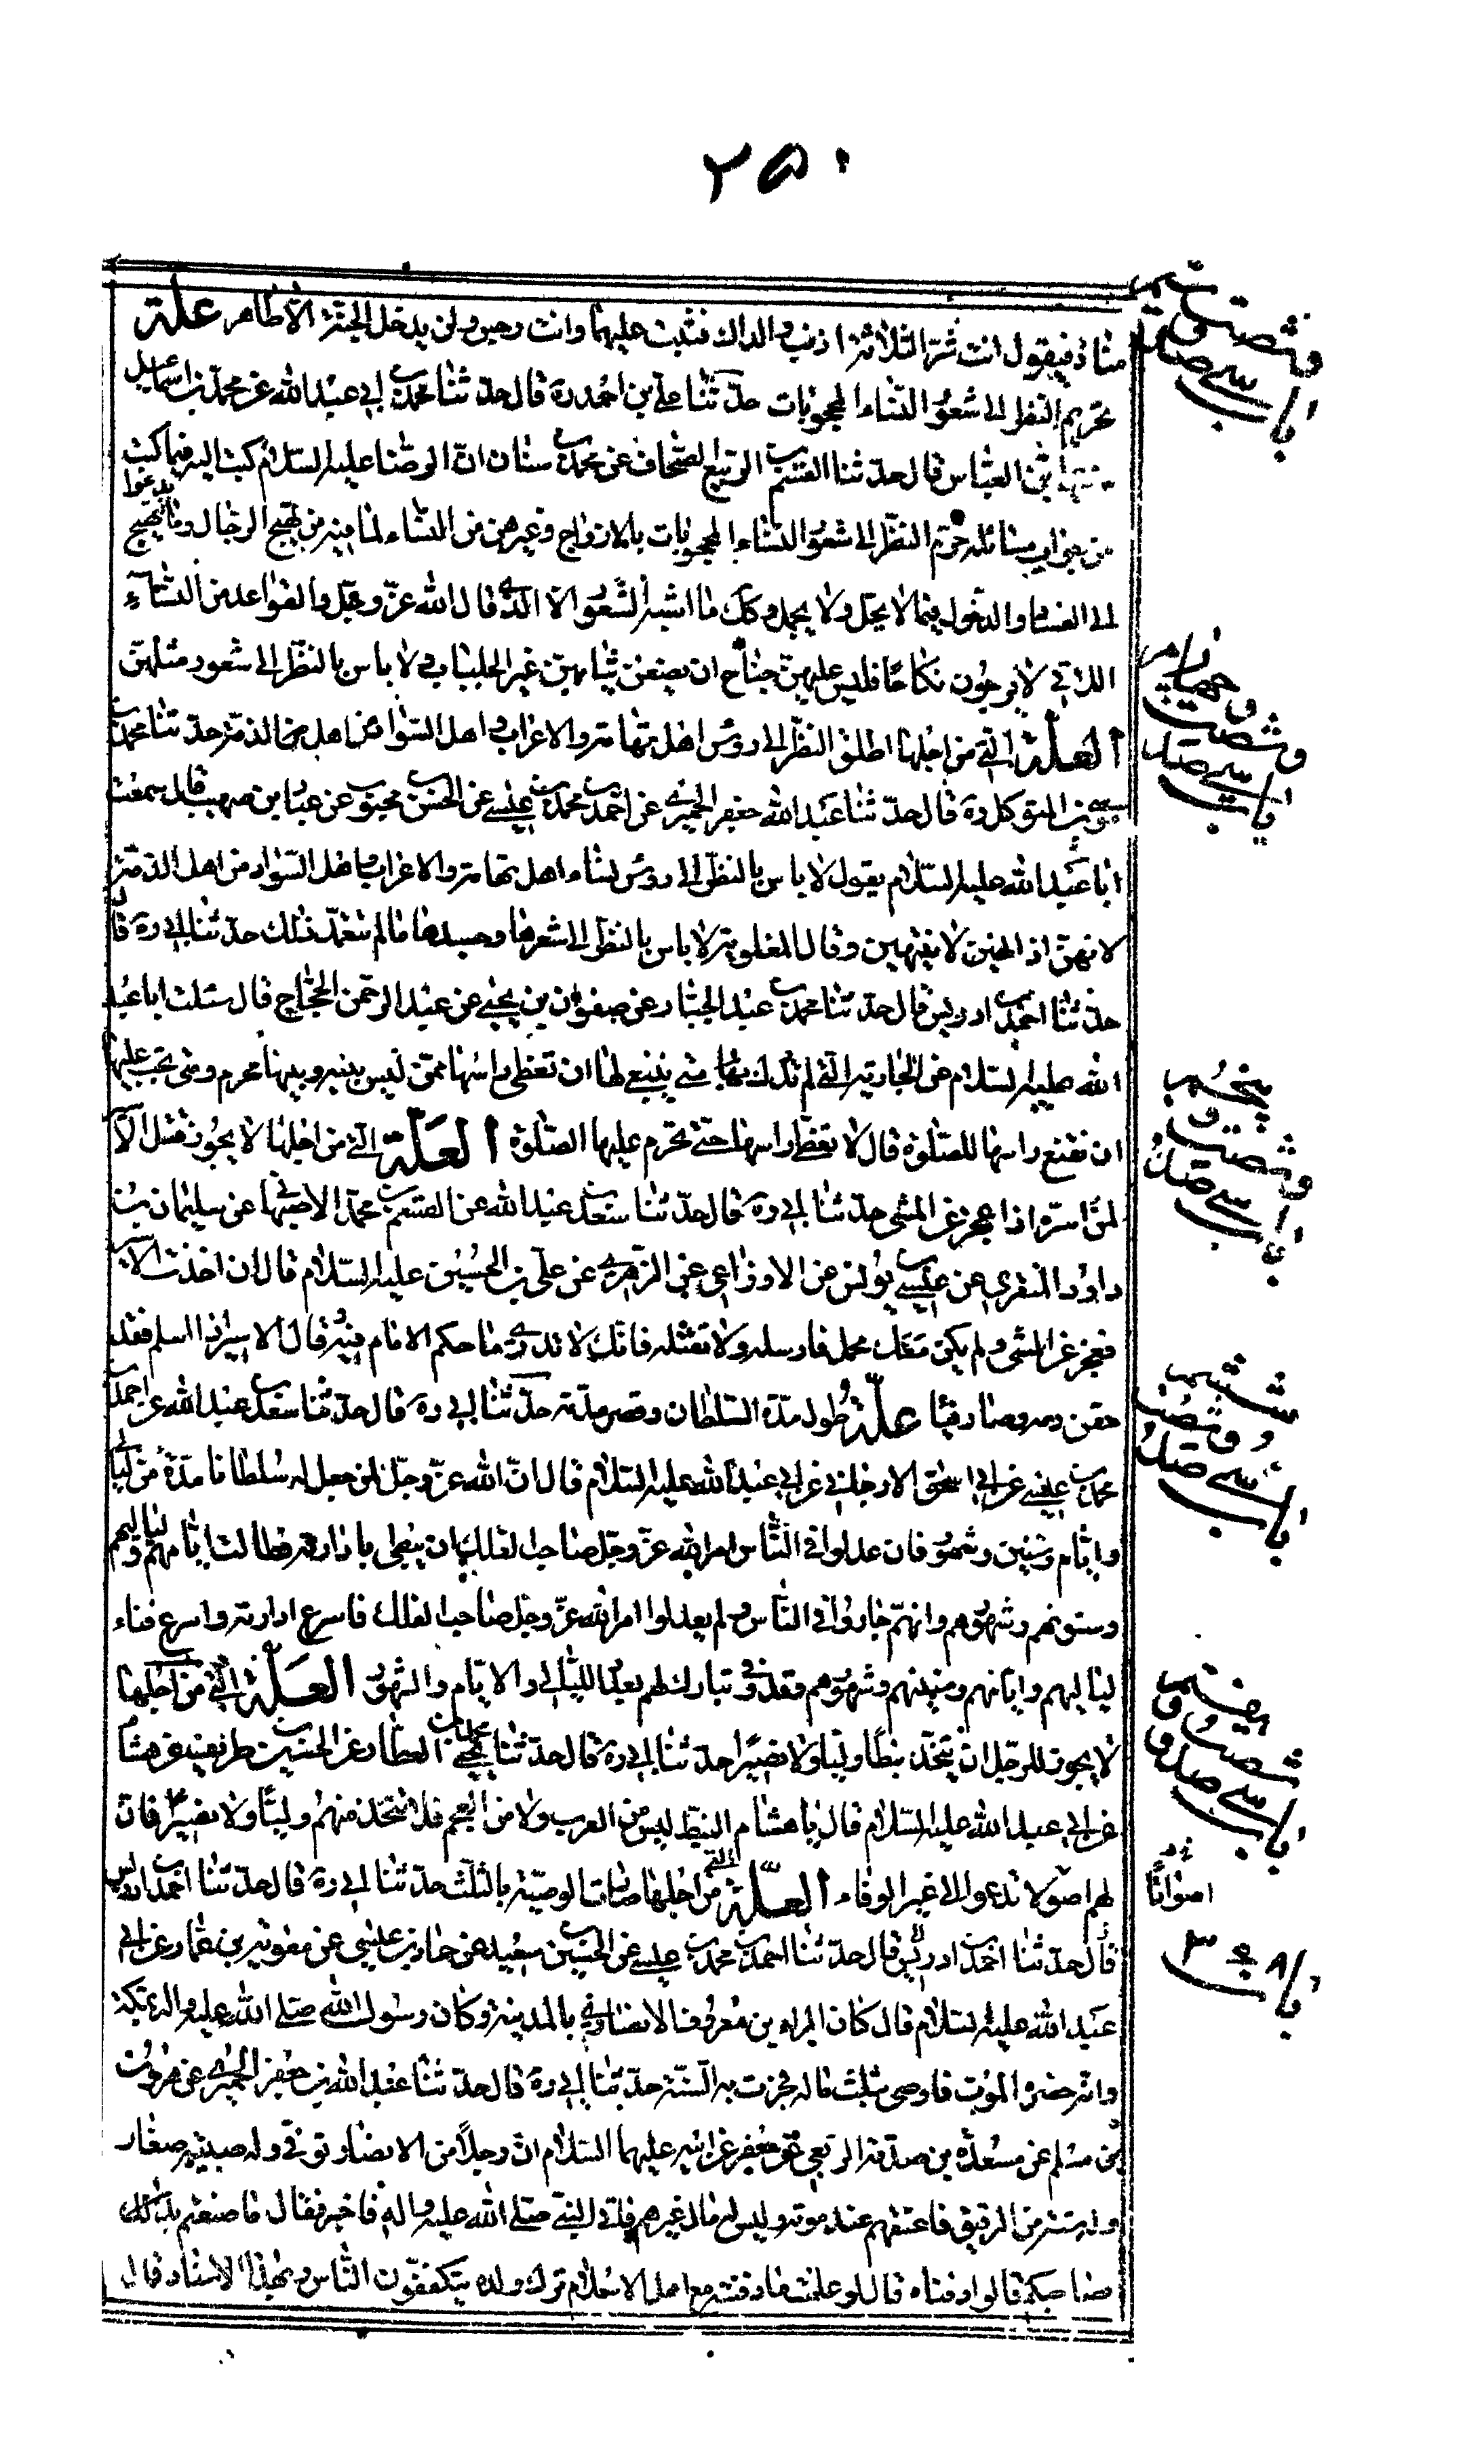 ٢٥٠
منا ذ فيقول انت شر الثلاثة اذنب والداك فثبت عليهما وانت رجس ولن يدخل الجنة الا طاهر علة
تحريم النظر الى شعور النساء المحجوبات حدثنا علي بن احمد ره قال حدثنا محمد بن ابي عبد الله عن محمد بن اسماعيل
عن العباس قال حدثنا القسم بن الربيع الصحاف عن محمد بن سنان ان الرضا عليه السلام كتب اليه فيما كتب
من جواب مسائله حرم النظر الى شعور النساء المحجوبات بالازواج وغيرهن من النساء لما فيه من تهييج الرجال وما يدعوا التهييج
الى الفساد والدخول فيما لا يحل ولا يجمل وكك ما اشبه الشعور الا الذي قال الله عز وجل والقواعد من النساء
اللاتي لا يرجون نكاحا فليس عليهن جناح ان يضعن ثيابهن غير الجلباب ولا باس بالنظر الى شعور مثلهن
العلة التي من اجلها اطلق النظر الى رؤس اهل تهامة والاعراب واهل السواد من اهل الذمة حدثنا محمد بن
موسى بن المتوكل ره قال حدثنا عبد الله جعفر الحميري عن احمد بن محمد بن عيسى عن الحسن بن محبوب عن عباد بن صهيب قال سمعت
ابا عبد الله عليه السلام يقول لا باس بالنظر الى رؤس نساء اهل تهامة والاعراب واهل السواد من اهل الذمة
لانهن اذا نهين لا ينتهين وقال المغلوبة لا باس بالنظر الى شعرها وجسدها ما لم تتعمد ذلك حدثنا ابي ره قال
حدثنا احمد بن ادريس قال حدثنا محمد بن عبد الجبار عن صفوان بن يحيى عن عبد الرحمن الحجاج قال سئلت ابا عبد
الله عليه السلام عن الجارية التي لم تدرك متى ينبغي لها ان تغطي راسها ممن ليس بينه وبينها محرم ومتى يجب عليها
ان تقنع راسها للصلوة قال لا تغطي راسها حتى تحرم عليها الصلوة العلة التي من اجلها لا يجوز قتل الاسير
لمن اسره اذا عجز عن المشي حدثنا ابي ره قال حدثنا سعد بن عبد الله عن القسم بن محمد الاصبهاني عن سليمان بن
داود المنقري عن عيسى بن يونس عن الاوزاعي عن الزهري عن علي بن الحسين عليه السلام قال ان اخذت الاسير
فعجز عن المشي ولم يكن معك محمل فارسله ولا تقتله فانك لا تدري ما حكم الامام فيه قال الاسير اذا اسلم فقد
حقن دمه وصار فيئا علة طول مدة السلطان وقصر مدته حدثنا ابي ره قال حدثنا سعد بن عبد الله عن احمد بن
محمد بن عيسى عن ابي اسحق الارجاني عن ابي عبد الله عليه السلام قال ان الله عز وجل جعل لمن جعل له سلطانا مدة من ليالي
وايام وسنين وشهور فان عدلوا في الناس امر الله عز وجل صاحب الفلك ان يبطي بادارته فطالت ايامهم ولياليهم
وسنونهم وشهورهم وانهم جاروا في الناس ولم يعدلوا امر الله عز وجل صاحب الفلك فاسرع ادارته واسرع فناء
لياليهم وايامهم وسنينهم وشهورهم وقد وفى تبارك لهم بعدد الليالي والايام والشهور العلة التي من اجلها
لا يجوز للرجل ان يتخذ نبطا وليا ولا نصيرا حدثنا ابي ره قال حدثنا محمد بن يحيى العطار عن الحسين بن ظريف عن هشام
عن ابي عبد الله عليه السلام قال يا هشام النبط ليس من العرب ولا من العجم فلا تتخذ منهم وليا ولا نصيرا فان
لهم اصولا تدعوا الى غير الوفاء العلة التي من اجلها صارت الوصية بالثلث حدثنا ابي ره قال حدثنا احمد بن ادريس
قال حدثنا احمد بن ادريس قال حدثنا احمد بن محمد بن عيسى عن الحسين بن سعيد عن حماد بن عيسى عن معوية بن عمار عن ابي
عبد الله عليه السلام قال كان البراء بن معروف الانصاري بالمدينة وكان رسول الله صلى الله عليه واله بمكة
وانه حضره الموت فاوصى بثلث ماله فجرت به السنة حدثنا ابي ره قال حدثنا عبد الله بن جعفر الحميري عن هرون
بن مسلم عن مسعدة بن صدقة الربعي عن جعفر عن ابيه عليهما السلام ان رجلا من الانصار توفي وله صبية صغار
وله ستة من الرقيق فاعتقهم عند موته وليس له مال غيرهم فاتى النبي صلى الله عليه واله فاخبر فقال ما صنعتم
بصاحبكم قالوا دفناه قال لو علمت ما دفنته مع اهل الاسلام ترك ولده يتكففون الناس وبهذا الاسناد قال
باب سيصد و شصت و سيم
باب سيصد و شصت و چهارم
باب سيصد و شصت و پنجم
باب سيصد و شصت و ششم
باب سيصد و شصت و هفتم
اصواتا
باب